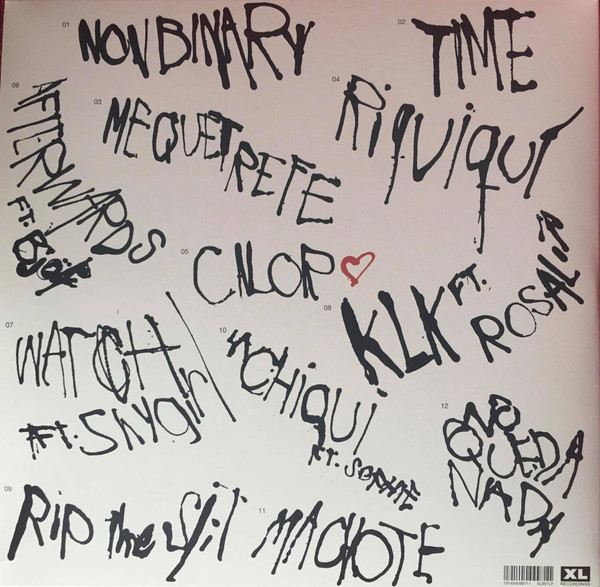 01 NONBINARY
02 TIME
03 MEQUETREFE
04 RiquiquÍ
05 CALOR
06 AFTERWARDS
FT. Björk
07 WATCH
FT. Shygirl
08 KLK FT.
ROSALÍA
09 Rip the Slit
10 LA CHIQUI
FT. SOPHIE
11 MACHOTE
12 NO
QUEDA
NADA
XL
RECORDINGS